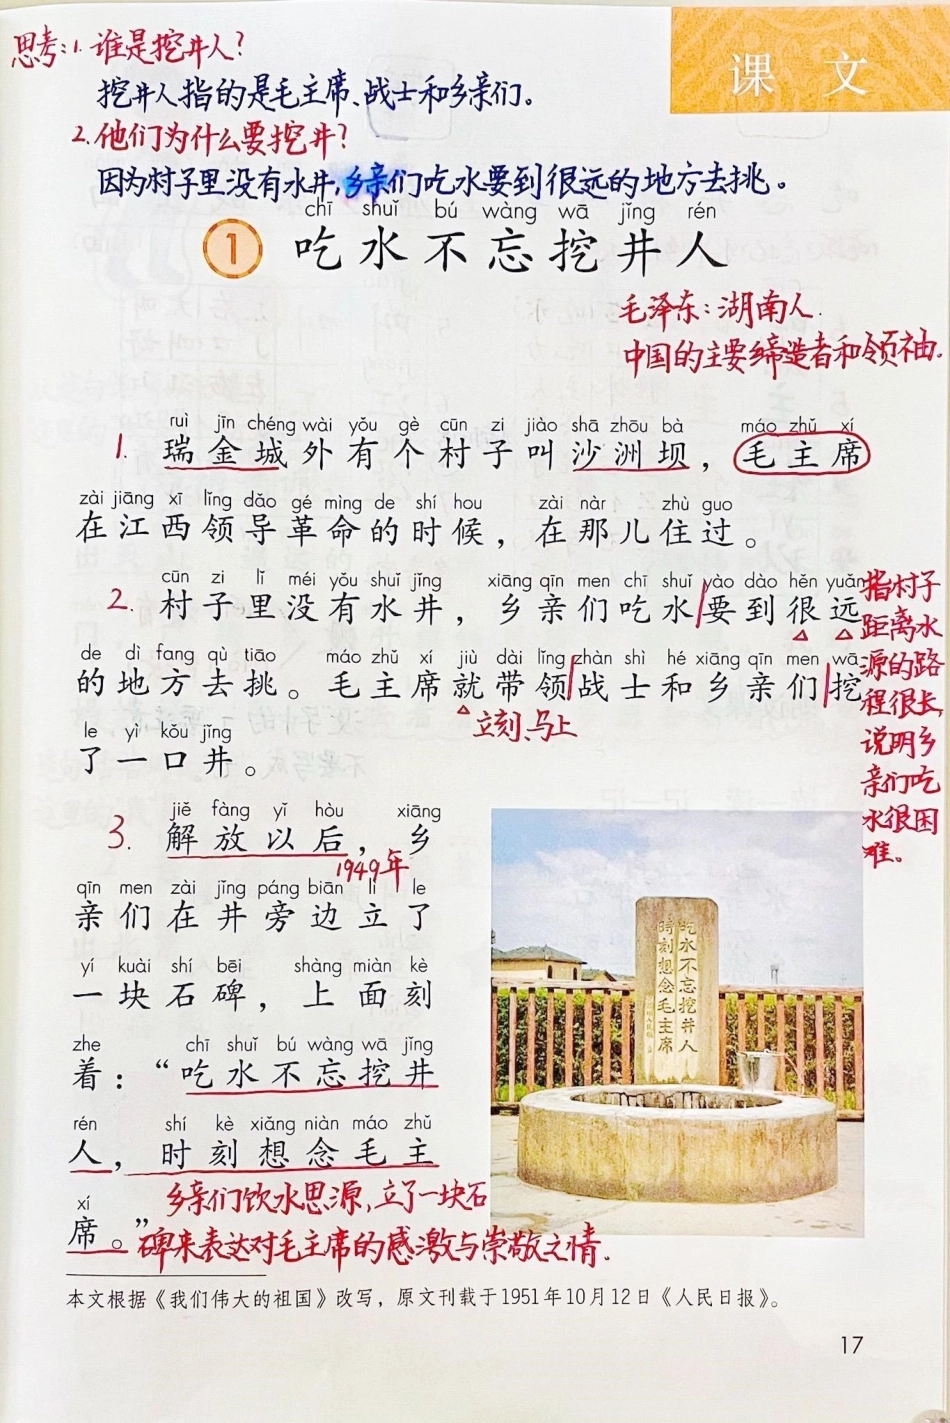 思考:1.谁是挖井人?
挖井人指的是毛主席、战士和乡亲们。
课 文
2.他们为什么要挖井?
因为村子里没有水井,乡亲们吃水要到很远的地方去挑。
chī shuǐ bú wàng wā jǐng rén
1 吃水不忘挖井人
毛泽东:湖南人.
中国的主要缔造者和领袖.
ruì jīn chéng wài yǒu gè cūn zi jiào shā zhōu bà máo zhǔ xí
1. 瑞金城外有个村子叫沙洲坝，毛主席
zài jiāng xī lǐng dǎo gé mìng de shí hou zài nàr zhù guo
在江西领导革命的时候，在那儿住过。
cūn zi lǐ méi yǒu shuǐ jǐng xiāng qīn men chī shuǐ yào dào hěn yuǎn
2. 村子里没有水井，乡亲们吃水要到很远
de dì fang qù tiāo máo zhǔ xí jiù dài lǐng zhàn shì hé xiāng qīn men wā
的地方去挑。毛主席就带领战士和乡亲们挖
立刻、马上
le yì kǒu jǐng
了一口井。
指村子
距离水
源的路
程很长,
说明乡
亲们吃
水很困
难。
jiě fàng yǐ hòu xiāng
3. 解放以后，乡
1949年
qīn men zài jǐng páng biān lì le
亲们在井旁边立了
yí kuài shí bēi shàng miàn kè
一块石碑，上面刻
zhe chī shuǐ bú wàng wā jǐng
着：“吃水不忘挖井
rén shí kè xiǎng niàn máo zhǔ
人，时刻想念毛主
xí
席。”
乡亲们饮水思源,立了一块石
碑来表达对毛主席的感激与崇敬之情.
吃水不忘挖井人
時刻想念毛主席
本文根据《我们伟大的祖国》改写，原文刊载于1951年10月12日《人民日报》。
17